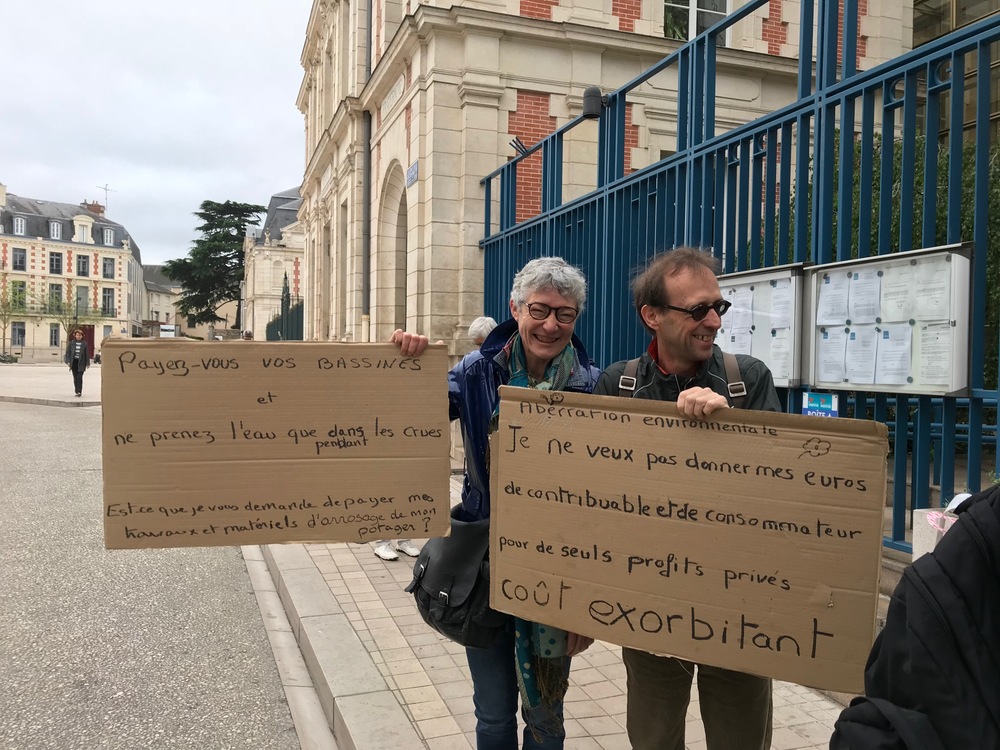 Payez-vous vos BASSINES
et
ne prenez l'eau que dans les crues
pendant
Est-ce que je vous demande de payer mes
travaux et matériels d'arrosage de mon
potager ?
Aberration environnementale
Je ne veux pas donner mes euros
de contribuable et de consommateur
pour de seuls profits privés
coût exorbitant